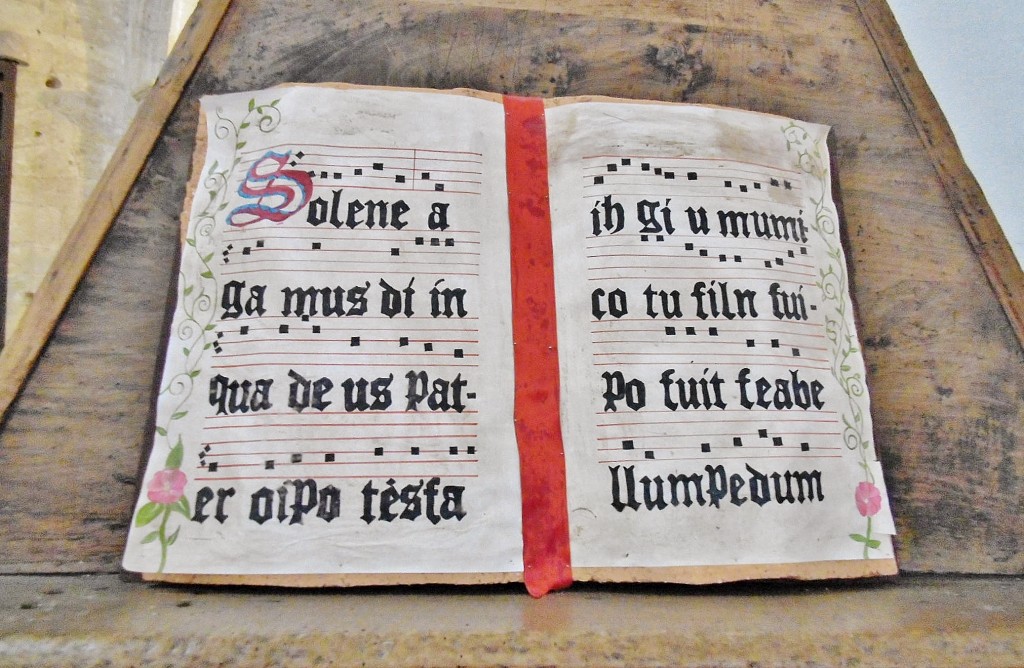 Solene a
ga mus di in
qua de us Pat-
er oiPo tèsfa
ih gi u mumi-
co tu filn fui-
Po fuit feabe
llumPedum